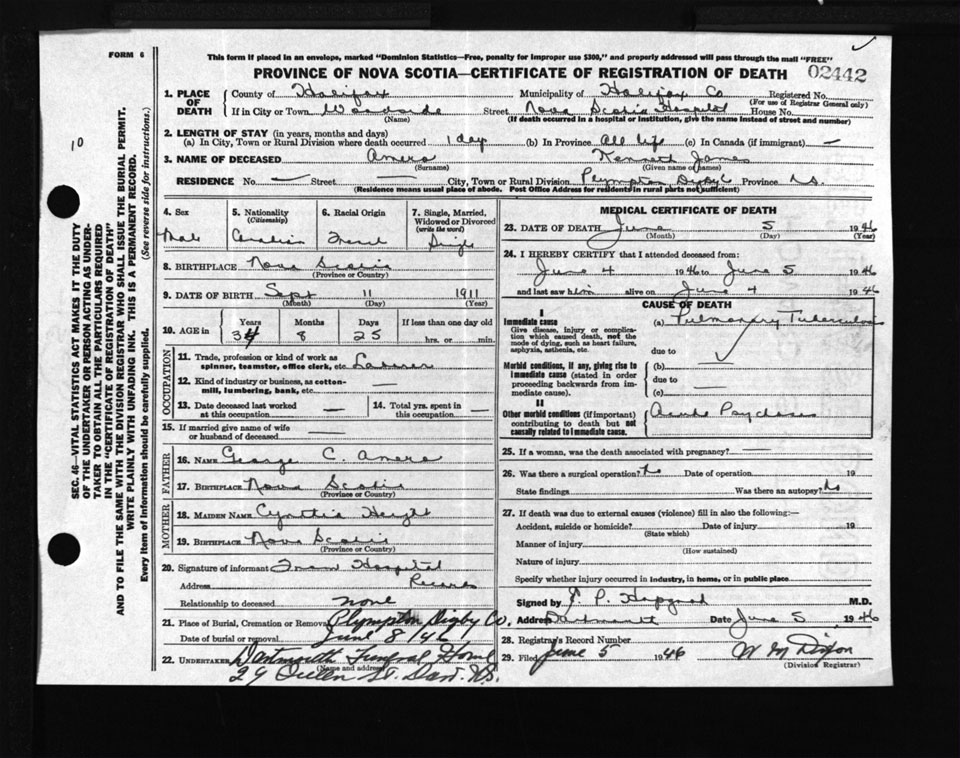 FORM 6
This form if placed in an envelope, marked "Dominion Statistics—Free, penalty for improper use $300," and properly addressed will pass through the mail "FREE"
PROVINCE OF NOVA SCOTIA—CERTIFICATE OF REGISTRATION OF DEATH
02442
10
SEC. 46—VITAL STATISTICS ACT MAKES IT THE DUTY
OF THE UNDERTAKER OR PERSON ACTING AS UNDER-
TAKER TO OBTAIN ALL THE PARTICULARS REQUIRED
IN THE "CERTIFICATE OF REGISTRATION OF DEATH"
AND TO FILE THE SAME WITH THE DIVISION REGISTRAR WHO SHALL ISSUE THE BURIAL PERMIT.
WRITE PLAINLY WITH UNFADING INK. THIS IS A PERMANENT RECORD.
Every item of information should be carefully supplied. (See reverse side for instructions.)
1. PLACE OF DEATH
County of Halifax Municipality of Halifax Co Registered No.
(For use of Registrar General only)
If in City or Town Street Nova Scotia Hospital House No.
(Name) (If death occurred in a hospital or institution, give the name instead of street and number)
2. LENGTH OF STAY (in years, months and days)
(a) In City, Town or Rural Division where death occurred 1 day (b) In Province All life (c) In Canada (if immigrant) —
3. NAME OF DECEASED Kenneth James
(Surname) (Given name or names)
RESIDENCE No. — Street City, Town or Rural Division Plympton Digby Province N.S.
(Residence means usual place of abode. Post Office Address for residents in rural parts not sufficient)
4. Sex Male
5. Nationality (Citizenship) Canadian
6. Racial Origin French
7. Single, Married, Widowed or Divorced (write the word) Single
8. BIRTHPLACE Nova Scotia
(Province or Country)
9. DATE OF BIRTH Sept 11 1911
(Month) (Day) (Year)
10. AGE in Years 34 Months 8 Days 25 If less than one day old hrs. or min.
OCCUPATION
11. Trade, profession or kind of work as spinner, teamster, office clerk, etc. Laborer
12. Kind of industry or business, as cotton-mill, lumbering, bank, etc. —
13. Date deceased last worked at this occupation —
14. Total yrs. spent in this occupation —
15. If married give name of wife or husband of deceased —
FATHER
16. NAME George C.
17. BIRTHPLACE Nova Scotia
(Province or Country)
MOTHER
18. MAIDEN NAME Cynthia
19. BIRTHPLACE Nova Scotia
(Province or Country)
20. Signature of informant From Hospital
Address Records
Relationship to deceased none
21. Place of Burial, Cremation or Removal Plympton Digby Co.
Date of burial or removal June 8/46
22. UNDERTAKER Dartmouth Funeral Home
(Name and address)
29 Queen St. Dart. N.S.
MEDICAL CERTIFICATE OF DEATH
23. DATE OF DEATH June 5 1946
(Month) (Day) (Year)
24. I HEREBY CERTIFY that I attended deceased from:
June 4 1946 to June 5 1946
and last saw him alive on June 4 1946
CAUSE OF DEATH
I
Immediate cause (a) Pulmonary Tuberculosis
Give disease, injury or complication which caused death, not the mode of dying, such as heart failure, asphyxia, asthenia, etc.
due to
Morbid conditions, if any, giving rise to immediate cause (stated in order proceeding backwards from immediate cause).
(b) —
due to —
(c)
II
Other morbid conditions (if important) contributing to death but not causally related to immediate cause.
Acute Psychosis
25. If a woman, was the death associated with pregnancy? —
26. Was there a surgical operation? No Date of operation 19
State findings Was there an autopsy? No
27. If death was due to external causes (violence) fill in also the following:—
Accident, suicide or homicide? Date of injury 19
(State which)
Manner of injury
(How sustained)
Nature of injury
Specify whether injury occurred in industry, in home, or in public place
Signed by E. P. M.D.
Address Dartmouth Date June 5 1946
28. Registrar's Record Number
29. Filed June 5 1946 W M Dixon
(Division Registrar)